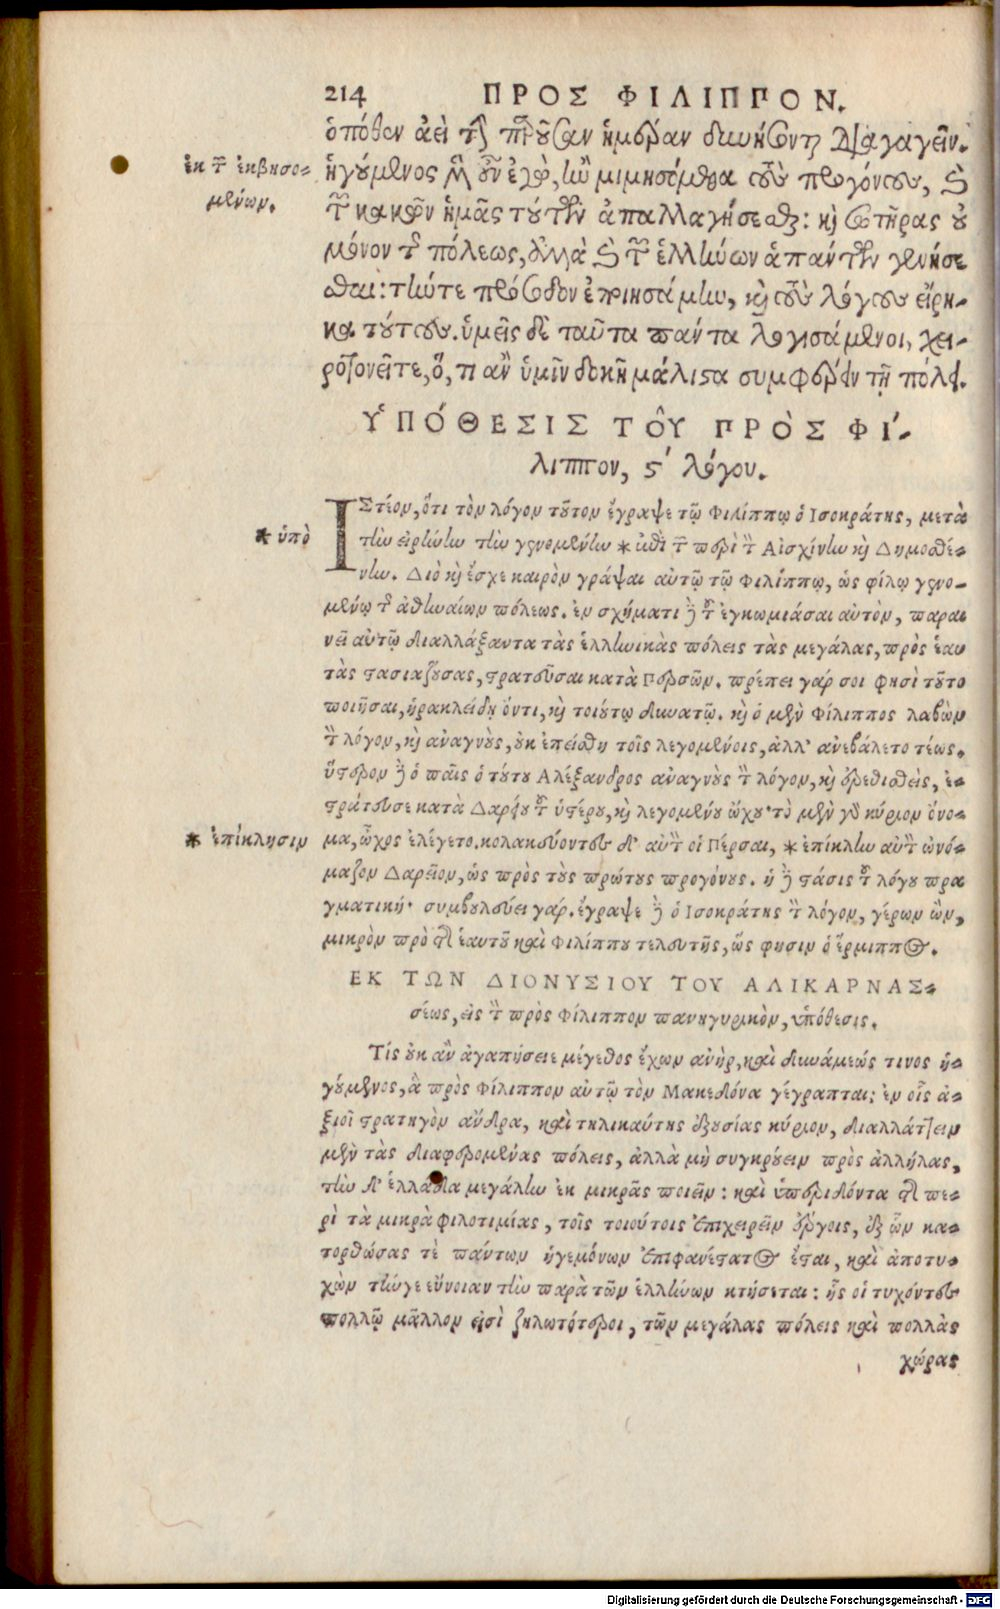 214 ΠΡΟΣ ΦΙΛΙΠΠΟΝ.
ὁπόθεν ἀεὶ τὴν παροῦσαν ἡμέραν δυνήσονται διαγαγεῖν.
ἐκ τῶν ἐκβησο-
μένων.
ἡγούμενος δὴ οὖν ἐγὼ, ἢν μιμησώμεθα τοὺς προγόνους, καὶ
τῶν κακῶν ἡμᾶς τούτων ἀπαλλαγήσεσθαι: καὶ σωτῆρας οὐ
μόνον τῆς πόλεως, ἀλλὰ καὶ τῶν ἑλλήνων ἁπάντων γενήσε
σθαι: τήν τε πρόσοδον ἐποιησάμην, καὶ τοὺς λόγους εἴρη-
κα τούτους. ὑμεῖς δὲ ταῦτα πάντα λογισάμενοι, χει-
ροτονεῖτε, ὅ, τι ἂν ὑμῖν δοκῇ μάλιστα συμφέρειν τῇ πόλει.
ΥΠΟΘΕΣΙΣ ΤΟΥ ΠΡΟΣ ΦΙ-
λιππον, ϛ΄ λόγου.
ΙΣτέον, ὅτι τὸν λόγον τοῦτον ἔγραψε τῷ Φιλίππῳ ὁ Ἰσοκράτης, μετὰ
* ὑπὸ
τὴν εἰρήνην τὴν γενομένην * ἀπὸ τῶν περὶ τὸν Αἰσχίνην καὶ Δημοσθέ-
νην. Διὸ καὶ ἔσχε καιρὸν γράψαι αὐτῷ τῷ Φιλίππῳ, ὡς φίλῳ γενο-
μένῳ τῆς ἀθηναίων πόλεως. ἐν σχήματι δὲ τοῦ ἐγκωμιάσαι αὐτὸν, παραι
νεῖ αὐτῷ διαλλάξαντα τὰς ἑλληνικὰς πόλεις τὰς μεγάλας, πρὸς ἑαυ
τὰς στασιαζούσας, στρατεῦσαι κατὰ Περσῶν. πρέπει γάρ σοι φησὶ τοῦτο
ποιῆσαι, ἡρακλείδῃ ὄντι, καὶ τοιούτῳ δυνατῷ. καὶ ὁ μὲν Φίλιππος λαβὼν
τὸν λόγον, καὶ ἀναγνοὺς, οὐκ ἐπείσθη τοῖς λεγομένοις, ἀλλ' ἀνεβάλετο τέως.
ὕστερον δὲ ὁ παῖς ὁ τούτου Αλέξανδρος ἀναγνοὺς τὸν λόγον, καὶ ἐρεθισθεὶς, ἐ-
στράτευσε κατὰ Δαρείου τοῦ ὑστέρου, καὶ λεγομένου ὤχου· τὸ μὲν γὰρ κύριον ὄνο-
* ἐπίκλησιν
μα, ὦχος ἐλέγετο. κολακεύοντες δ' αὐτὸν οἱ Πέρσαι, * ἐπίκλην αὐτὸν ὠνό-
μαζον Δαρεῖον, ὡς πρὸς τοὺς πρώτους προγόνους. ἡ δὲ στάσις τοῦ λόγου πρα
γματική· συμβουλεύει γάρ. ἔγραψε δὲ ὁ Ἰσοκράτης τὸν λόγον, γέρων ὢν,
μικρὸν πρὸ τῆς ἑαυτοῦ καὶ Φιλίππου τελευτῆς, ὥς φησιν ὁ ἕρμιππος.
ΕΚ ΤΩΝ ΔΙΟΝΥΣΙΟΥ ΤΟΥ ΑΛΙΚΑΡΝΑΣ-
σέως, εἰς τὸν πρὸς Φίλιππον πανηγυρικὸν, ὑπόθεσις.
Τίς οὐκ ἂν ἀγαπήσειε μέγεθος ἔχων ἀνὴρ, καὶ δυνάμεώς τινος ἡ-
γούμενος, ἃ πρὸς Φίλιππον αὐτῷ τὸν Μακεδόνα γέγραπται; ἐν οἷς ἀ-
ξιοῖ στρατηγὸν ἄνδρα, καὶ τηλικαύτης ἐξουσίας κύριον, διαλλάττειν
μὲν τὰς διαφερομένας πόλεις, ἀλλὰ μὴ συγκρούειν πρὸς ἀλλήλας,
τὴν δ' ἑλλάδα μεγάλην ἐκ μικρᾶς ποιεῖν: καὶ ὑπεριδόντα τῆς πε-
ρὶ τὰ μικρὰ φιλοτιμίας, τοῖς τοιούτοις ἐπιχειρεῖν ἔργοις, ἐξ ὧν κα-
τορθώσας τὲ πάντων ἡγεμόνων ἐπιφανέστατος ἔσται, καὶ ἀποτυ-
χὼν τήν γε εὔνοιαν τὴν παρὰ τῶν ἑλλήνων κτήσεται: ἧς οἱ τυχόντες
πολλῷ μᾶλλον εἰσὶ ζηλωτότεροι, τῶν μεγάλας πόλεις καὶ πολλὰς
χώρας
Digitalisierung gefördert durch die Deutsche Forschungsgemeinschaft - DFG